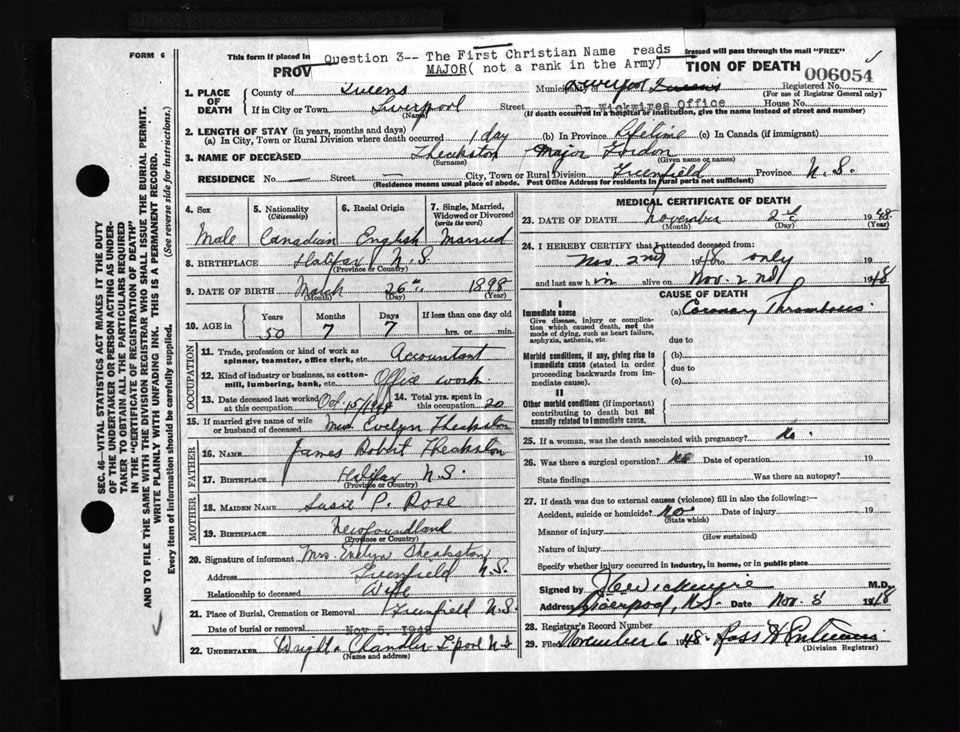 FORM 6
This form if placed in Question 3-- The First Christian Name reads dressed will pass through the mail "FREE"
MAJOR( not a rank in the Army)
PROV TION OF DEATH
006054
1. PLACE OF DEATH County of Queens Municipality of Liverpool Queens Registered No.
(For use of Registrar General only)
If in City or Town Liverpool (Name) Street Dr. Wickwires Office House No.
(If death occurred in a hospital or institution, give the name instead of street and number)
2. LENGTH OF STAY (in years, months and days)
(a) In City, Town or Rural Division where death occurred 1 day (b) In Province Lifetime (c) In Canada (if immigrant)
3. NAME OF DECEASED Theakston (Surname) Major Gordon (Given name or names)
RESIDENCE No. — Street — City, Town or Rural Division Greenfield Province N.S.
(Residence means usual place of abode. Post Office Address for residents in rural parts not sufficient)
4. Sex Male
5. Nationality (Citizenship) Canadian
6. Racial Origin English
7. Single, Married, Widowed or Divorced (write the word) Married
8. BIRTHPLACE Halifax N.S.
(Province or Country)
9. DATE OF BIRTH March 26th 1898
(Month) (Day) (Year)
10. AGE in Years 50 Months 7 Days 7 If less than one day old hrs. or min.
OCCUPATION
11. Trade, profession or kind of work as spinner, teamster, office clerk, etc. Accountant
12. Kind of industry or business, as cotton-mill, lumbering, bank, etc. Office work
13. Date deceased last worked at this occupation Oct 15/1948 14. Total yrs. spent in this occupation 20
15. If married give name of wife or husband of deceased Mrs. Evelyn Theakston
FATHER
16. NAME James Robert Theakston
17. BIRTHPLACE Halifax N.S.
(Province or Country)
MOTHER
18. MAIDEN NAME Susie P. Rose
19. BIRTHPLACE Newfoundland
(Province or Country)
20. Signature of informant Mrs. Evelyn Theakston
Address Greenfield N.S.
Relationship to deceased Wife
21. Place of Burial, Cremation or Removal Greenfield N.S.
Date of burial or removal Nov 5, 1948
22. UNDERTAKER Chandler L'pool N.S.
(Name and address)
MEDICAL CERTIFICATE OF DEATH
23. DATE OF DEATH November 2nd 1948
(Month) (Day) (Year)
24. I HEREBY CERTIFY that I attended deceased from:
Nov. 2nd 1948 to only 19
and last saw him alive on Nov. 2nd 1948
CAUSE OF DEATH
I
Immediate cause (a) Coronary Thrombosis
Give disease, injury or complication which caused death, not the mode of dying, such as heart failure, asphyxia, asthenia, etc.
due to
Morbid conditions, if any, giving rise to immediate cause (stated in order proceeding backwards from immediate cause).
(b)
due to
(c)
II
Other morbid conditions (if important) contributing to death but not causally related to immediate cause.
25. If a woman, was the death associated with pregnancy? No
26. Was there a surgical operation? No Date of operation 19
State findings Was there an autopsy?
27. If death was due to external causes (violence) fill in also the following:—
Accident, suicide or homicide? No Date of injury 19
(State which)
Manner of injury
(How sustained)
Nature of injury
Specify whether injury occurred in industry, in home, or in public place
Signed by J C Wickwire M.D.
Address Liverpool, N.S. Date Nov. 1948
28. Registrar's Record Number
29. Filed November 6 1948.
(Division Registrar)
SEC. 46—VITAL STATISTICS ACT MAKES IT THE DUTY
OF THE UNDERTAKER OR PERSON ACTING AS UNDER-
TAKER TO OBTAIN ALL THE PARTICULARS REQUIRED
IN THE "CERTIFICATE OF REGISTRATION OF DEATH"
AND TO FILE THE SAME WITH THE DIVISION REGISTRAR WHO SHALL ISSUE THE BURIAL PERMIT.
WRITE PLAINLY WITH UNFADING INK. THIS IS A PERMANENT RECORD.
Every item of information should be carefully supplied. (See reverse side for instructions.)